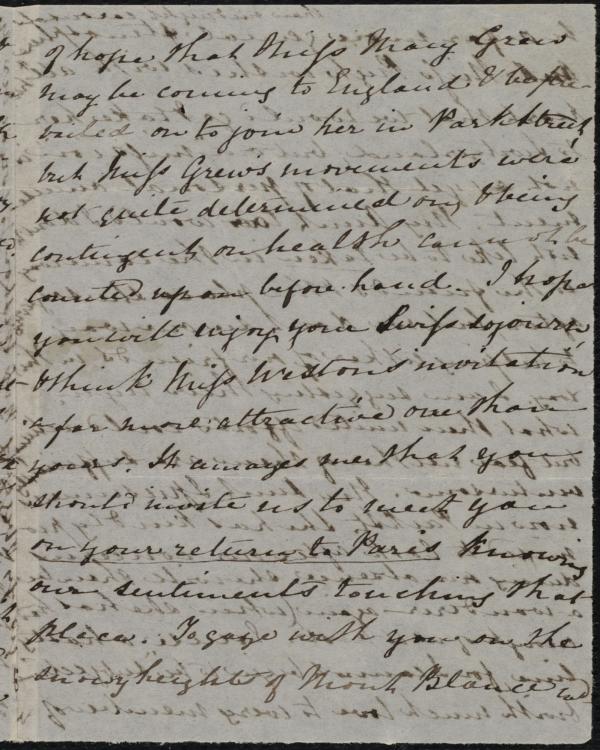 of hope that Miss Mary Grew
may be coming to England & be pre-
vailed on to join her in Park Street,
but Miss Grew's movements were
not quite determined on, & being
contingent on health cannot be
counted upon before hand. I hope
you will enjoy your Swiss sojourn,
& think Miss Weston's invitation
a far more attractive one than
yours. It amazes me that you
should invite us to meet you
on your return to Paris knowing
our sentiments touching that
place. To gaze with you on the
snowy height of Mont Blanc